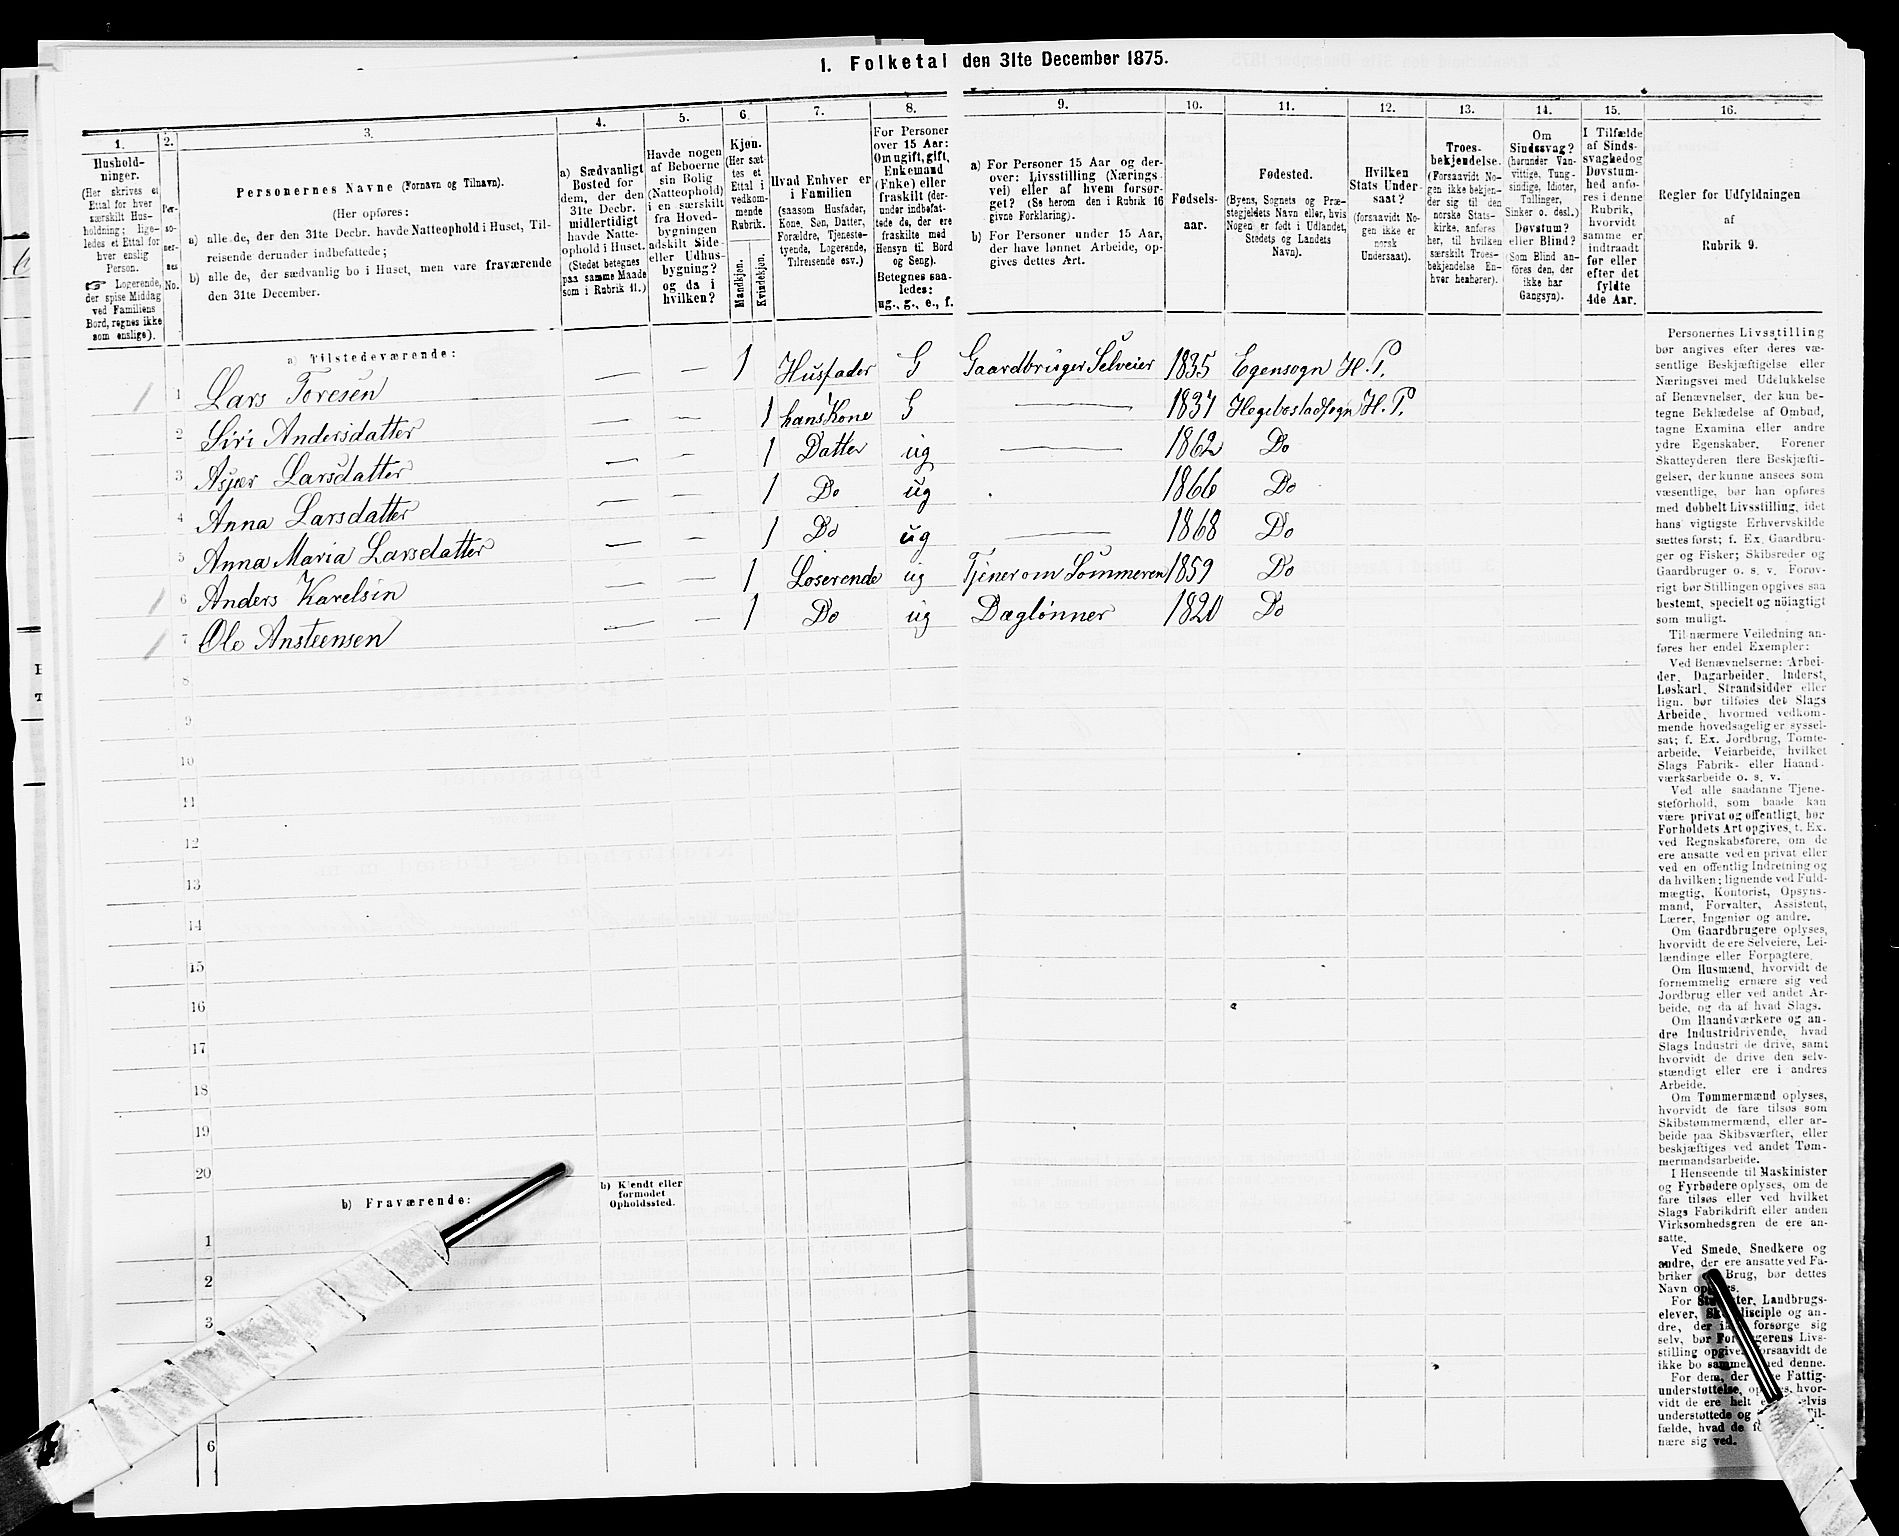 1. Folketal den 31te December 1875.
1.
Hushold-
ninger.
(Her skrives et
Ettal for hver
særskilt Hus-
holdning; lige-
ledes et Ettal for
hver enslig
Person.
☞ Logerende,
der spise Middag
ved Familiens
Bord, regnes ikke
som enslige).
2.
Per-
so-
ner-
nes
No.
3.
Personernes Navne (Fornavn og Tilnavn).
(Her opføres:
a) alle de, der den 31te Decbr. havde Natteophold i Huset, Til-
reisende derunder indbefattede;
b) alle de, der sædvanlig bo i Huset, men vare fraværende
den 31te December.
4.
a) Sædvanligt
Bosted for
dem, der den
31te Decbr.
midlertidigt
havde Natte-
ophold i Huset.
(Stedet betegnes
paa samme Maade
som i Rubrik 11.)
5.
Havde nogen
af Beboerne
sin Bolig
(Natteophold)
i en særskilt
fra Hoved-
bygningen
adskilt Side-
eller Udhus-
bygning?
og da i
hvilken?
6.
Kjøn.
(Her sæt-
tes et
Ettal i
vedkom-
mende
Rubrik.
Mandkjøn.
Kvindekjøn.
7.
Hvad Enhver er
i Familien
(saasom Husfader,
Kone, Søn, Datter,
Forældre, Tjeneste-
tyende, Logerende,
Tilreisende osv.)
8.
For Personer
over 15 Aar:
Om ugift, gift,
Enkemand
(Enke) eller
fraskilt (der-
under indbefat-
tede de, der ere
fraskilte med
Hensyn til Bord
og Seng).
Betegnes saa-
ledes:
ug., g., e., f.
9.
a) For Personer 15 Aar og der-
over: Livsstilling (Nærings-
vei) eller af hvem forsør-
get? (Se herom den i Rubrik 16
givne Forklaring).
b) For Personer under 15 Aar,
der have lønnet Arbeide, op-
gives dettes Art.
10.
Fødsels-
aar.
11.
Fødested.
(Byens, Sognets og Præ-
stegjeldets Navn eller, hvis
Nogen er født i Udlandet,
Stedets og Landets
Navn).
12.
Hvilken
Stats Under-
saat?
(forsaavidt No-
gen ikke er
norsk
Undersaat).
13.
Troes-
bekjendelse.
(Forsaavidt No-
gen ikke bekjen-
der sig til den
norske Stats-
kirke, anføres
her, til hvilken
særskilt Troes-
bekjendelse En-
hver henhører).
14.
Om
Sindssvag?
(herunder Van-
vittige, Tung-
sindige, Idioter,
Tallinger,
Sinker o. desl.)
Døvstum?
eller Blind?
(Som Blind an-
føres den, der
ikke har
Gangsyn).
15.
I Tilfælde
af Sinds-
svaghed og
Døvstum-
hed anfø-
res i denne
Rubrik,
hvorvidt
samme er
indtraadt
før eller
efter det
fyldte
4de Aar.
16.
Regler for Udfyldningen
af
Rubrik 9.
a) Tilstedeværende:
1 1 Lars Toresen — — 1 Husfader G Gaardbruger Selveier 1835 Egensogn H. P.
2 Siri Andersdatter 1 hans Kone G — 1837 Hegebostadsogn H. P.
3 Asjær Larsdatter — — 1 Datter ug — 1862 Do
4 Anna Larsdatter — — 1 Do ug 1866 Do
5 Anna Maria Larsdatter — — 1 Do ug — 1868 Do
1 6 Anders Karelsin — — 1 Loserende ug Tjener om Sommeren 1859 Do
1 7 Ole Ansteensen — — 1 Do ug Dæglønner 1820 Do
8
9
10
11
12
13
14
15
16
17
18
19
20
b) Fraværende:
b) Kjendt eller
formodet
Opholdssted.
1
2
3
6
Personernes Livsstilling
bør angives efter deres væ-
sentlige Beskjæftigelse eller
Næringsvei med Udelukkelse
af Benævnelser, der kun be-
tegne Beklædelse af Ombud,
tagne Examina eller andre
ydre Egenskaber. Forener
Skatteyderen flere Beskjæfti-
gelser, der kunne ansees som
væsentlige, bør han opføres
med dobbelt Livsstilling, idet
hans vigtigste Erhvervskilde
sættes først; f. Ex. Gaardbru-
ger og Fisker; Skibsreder og
Gaardbruger o. s. v. Forøv-
rigt bør Stillingen opgives saa
bestemt, specielt og nøiagtigt
som muligt.
Til nærmere Veiledning an-
føres her endel Exempler:
Ved Benævnelserne: Arbei-
der, Dagarbeider, Inderst,
Løskarl, Strandsidder eller
lign. bør tilføies det Slags
Arbeide, hvormed vedkom-
mende hovedsagelig er syssel-
sat; f. Ex. Jordbrug, Tomte-
arbeide, Veiarbeide, hvilket
Slags Fabrik- eller Haand-
værksarbeide o. s. v.
Ved alle saadanne Tjene-
steforhold, som baade kan
være privat og offentligt, bør
Forholdets Art opgives, t. Ex.
ved Regnskabsførere, om de
ere ansatte ved en privat eller
ved en offentlig Indretning og
da hvilken; lignende ved Fuld-
mægtig, Kontorist, Opsyns-
mand, Forvalter, Assistent,
Lærer, Ingeniør og andre.
Om Gaardbrugere oplyses,
hvorvidt de ere Selveiere, Lei-
lændinge eller Forpagtere.
Om Husmænd, hvorvidt de
fornemmelig ernære sig ved
Jordbrug eller ved andet Ar-
beide, og da af hvad Slags.
Om Haandværkere og an-
dre Industridrivende, hvad
Slags Industri de drive, samt
hvorvidt de drive den selv-
stændigt eller ere i andres
Arbeide.
Om Tømmermænd oplyses,
hvorvidt de fare tilsøs som
Skibstømmermænd, eller ar-
beide paa Skibsværfter, eller
beskjæftiges ved andet Tøm-
mermandsarbeide.
I Henseende til Maskinister
og Fyrbødere oplyses, om de
fare tilsøs eller ved hvilket
Slags Fabrikdrift eller anden
Virksomhedsgren de ere an-
satte.
Ved Smede, Snedkere og
andre, der ere ansatte ved Fa-
briker Brug, bør dettes
Navn
For Landbrugs-
elever, og an-
dre, der forsørge sig
selv, bør Livs-
stilling forsaavidt de
ikke bo denne.
For dem, der Fattig-
understøttelse, hvor-
vidt de ere helt
understøttede og Til-
fælde, hvad de
nære sig ved.